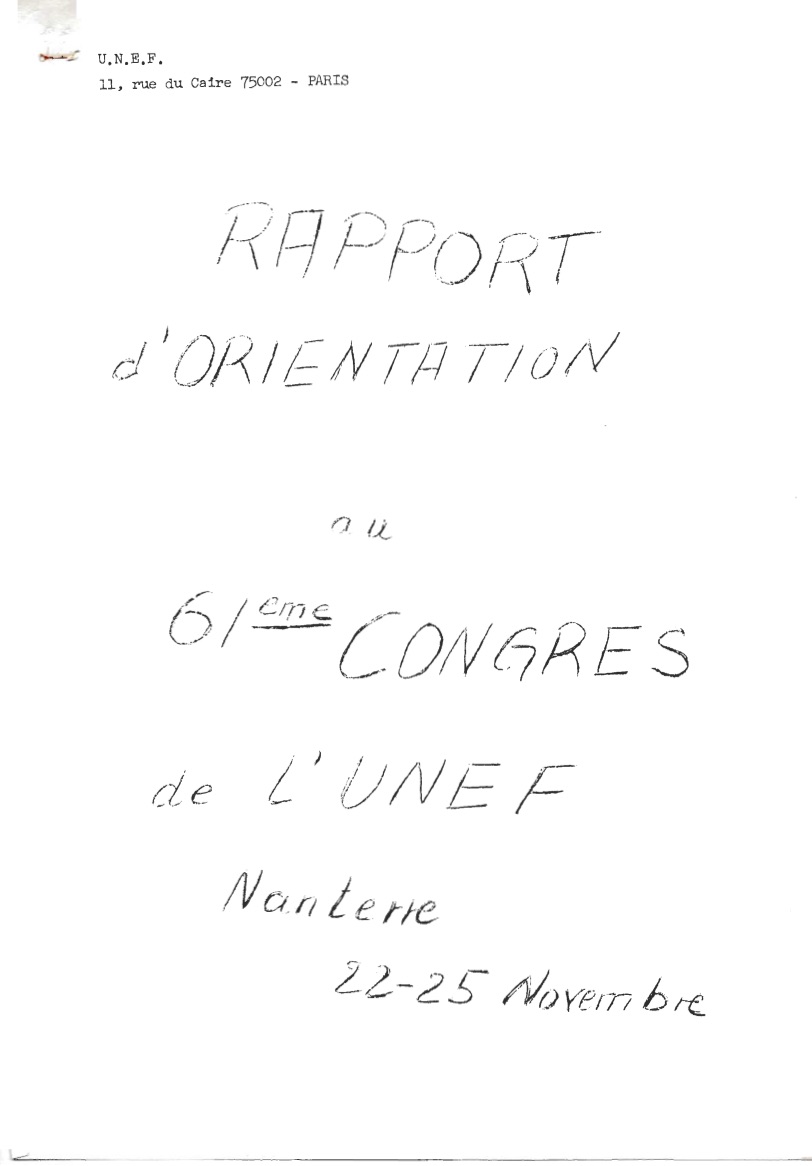 U.N.E.F.
11, rue du Caire 75002 - PARIS
RAPPORT
d'ORIENTATION
au
61eme CONGRES
de L'UNEF
Nanterre
22-25 Novembre